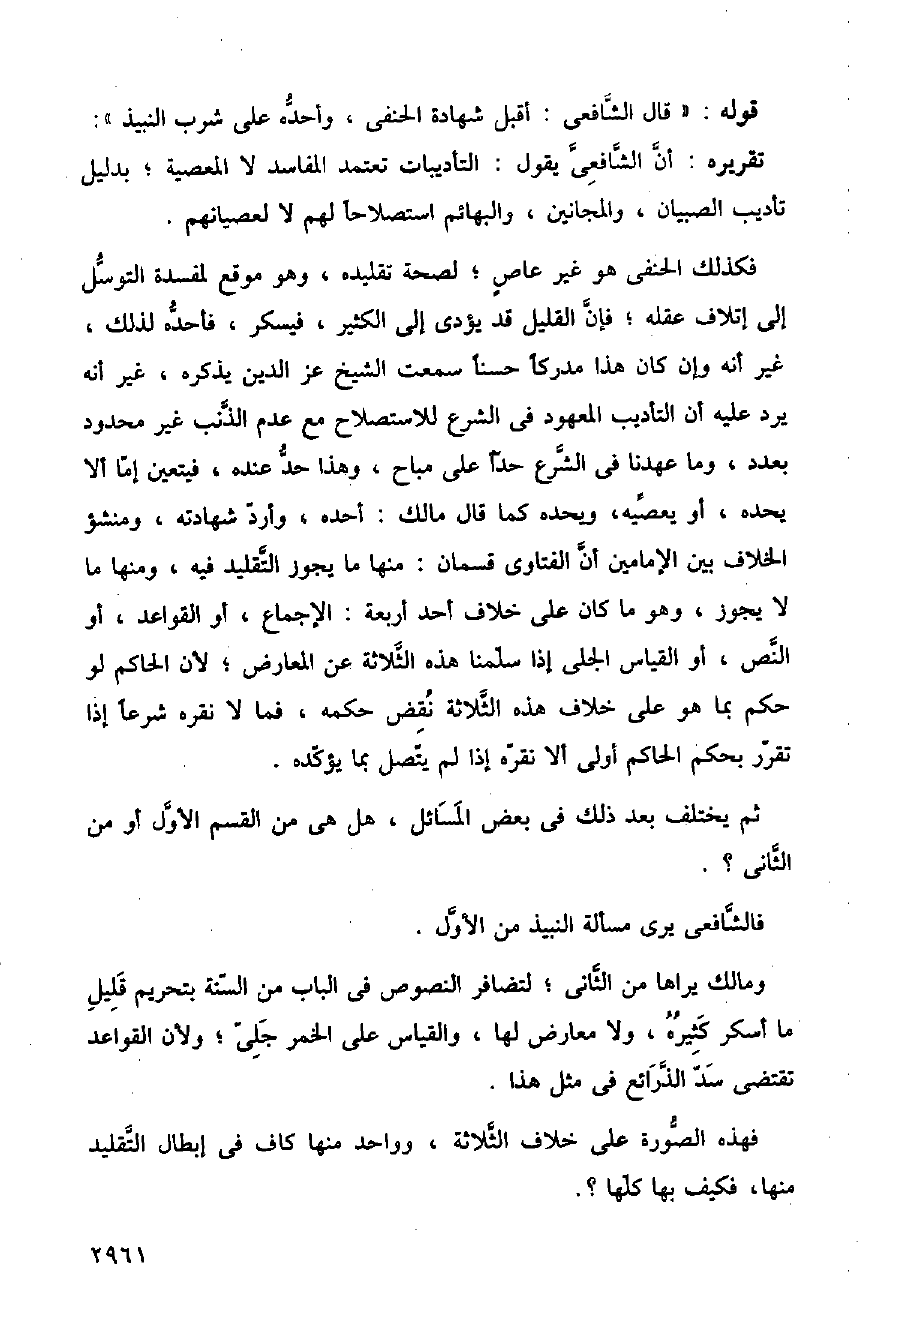 قوله : « قال الشَّافعى : أقبل شهادة الحنفى ، وأحدُّه على شرب النبيذ » :
تقريره : أنَّ الشَّافعِىَّ يقول : التأديبات تعتمد المفاسد لا المعصية ؛ بدليل
تأديب الصبيان ، والمجانين ، والبهائم استصلاحاً لهم لا لعصيانهم .
فكذلك الحنفى هو غير عاصٍ ؛ لصحة تقليده ، وهو موقع لمفسدة التوسُّل
إلى إتلاف عقله ؛ فإنَّ القليل قد يؤدى إلى الكثير ، فيسكر ، فأحدُّه لذلك ،
غير أنه وإن كان هذا مدركاً حسناً سمعت الشيخ عز الدين يذكره ، غير أنه
يرد عليه أن التأديب المعهود فى الشرع للاستصلاح مع عدم الذَّنب غير محدود
بعدد ، وما عهدنا فى الشَّرع حدّاً على مباح ، وهذا حدٌّ عنده ، فيتعين إمّا ألا
يحده ، أو يعصِّيه، ويحده كما قال مالك : أحده ، وأردّ شهادته ، ومنشؤ
الخلاف بين الإمامين أنَّ الفتاوى قسمان : منها ما يجوز التَّقليد فيه ، ومنها ما
لا يجوز ، وهو ما كان على خلاف أحد أربعة : الإجماع ، أو القواعد ، أو
النَّص ، أو القياس الجلى إذا سلمنا هذه الثَّلاثة عن المعارض ؛ لأن الحاكم لو
حكم بما هو على خلاف هذه الثَّلاثة نُقِض حكمه ، فما لا نقره شرعاً إذا
تقرّر بحكم الحاكم أولى ألا نقرّه إذا لم يتّصل بما يؤكّده .
ثم يختلف بعد ذلك فى بعض المَسَائل ، هل هى من القسم الأوَّل أو من
الثَّانى ؟ .
فالشَّافعى يرى مسألة النبيذ من الأوَّل .
ومالك يراها من الثَّانى ؛ لتضافر النصوص فى الباب من السّنّة بتحريم قَلِيلِ
ما أسكر كَثِيرُهُ ، ولا معارض لها ، والقياس على الخمر جَلِىّ ؛ ولأن القواعد
تقتضى سَدّ الذَّرَائِع فى مثل هذا .
فهذه الصُّورة على خلاف الثَّلاثة ، وواحد منها كاف فى إبطال التَّقليد
منها، فكيف بها كلّها ؟.
٢٩٦١